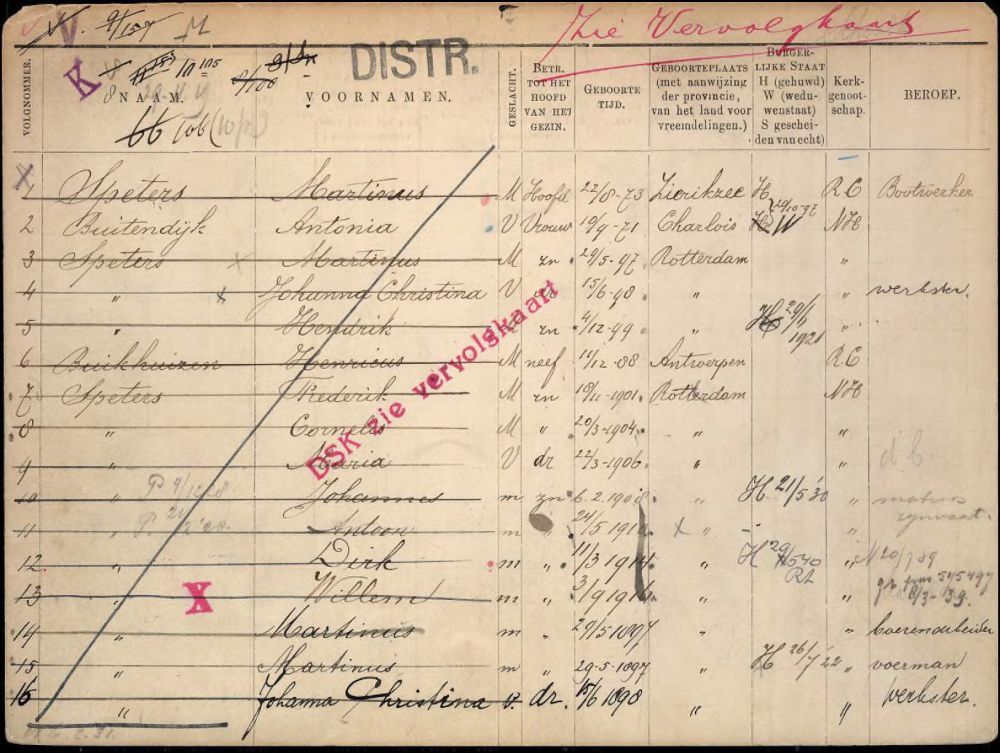 Zie Vervolgkaart
K
DISTR.
VOLGNOMMER.
NAAM.
VOORNAMEN.
GESLACHT.
BETR. TOT HET HOOFD VAN HET GEZIN.
GEBOORTE TIJD.
GEBOORTEPLAATS (met aanwijzing der provincie, van het land voor vreemdelingen.)
BURGERLIJKE STAAT H (gehuwd) W (weduwenstaat) S gescheiden van echt)
Kerkgenootschap.
BEROEP.
66 106
1 Speters Martinus M Hoofd 22/8-73 Zierikzee H R C Bootwerker
2 Buitendijk Antonia V Vrouw 10/9-71 Charlois H W 29/10-97 NH
3 Speters Martinus M zn 29/5-97 Rotterdam "
4 " Johanna Christina V 15/6-98 " " werkster.
5 " Hendrik zn 4/12-99 " H 29/6 1921 "
6 Buikhuizen Henricus M neef 11/12-88 Antwerpen R C
7 Speters Frederik M zn 19/11-1901. Rotterdam NH
8 " Cornelis M " 20/3-1904. " "
9 " Maria V dr 22/3-1906. "
10 Johannes m zn 6.2.1908 " H 21/5'30 "
11 " Antoon m 24/5 1910 X " "
12 " Dirk m " 11/3 1914. H "
13 " Willem m " 3/9 1916. " "
14 " Martinus m " 29/5 1897 " " boerenarbeider
15 " Martinus m " 29-5-1897 " H 26/7'22 " voerman
16 " Johanna Christina v. dr. 15/6 1898 " " Werkster.
DSK zie vervolgkaart
X